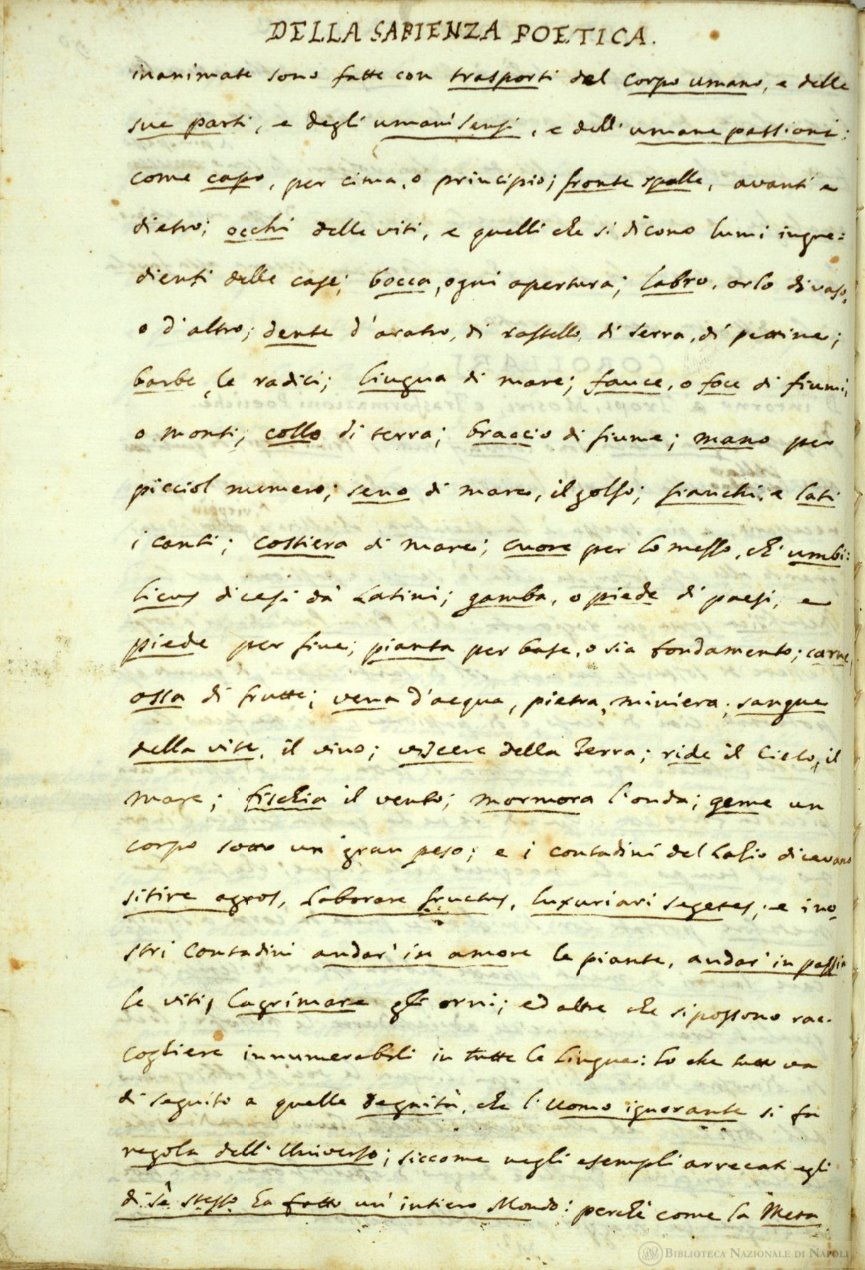 DELLA SAPIENZA POETICA.
inanimate sono fatte con trasporti del corpo umano, e delle
sue parti, e degli umani sensi, e dell' umane passioni:
come capo, per cima, o principio; fronte spalle, avanti e
dietro; occhi delle viti, e quelli che si dicono lumi ingre=
dienti delle case; bocca, ogni apertura; labro, orlo di vaso,
o d'altro; dente d'aratro, di rastello, di serra, di pettine;
barbe, le radici; lingua di mare; fauce, o foce di fiumi,
o monti; collo di terra; braccio di fiume; mano per
picciol numero; seno di mare, il golfo; fianchi, e lati
i canti; costiera di mare; cuore per lo mezzo, ch' umbi=
licus dicesi da' Latini; gamba, o piede di paesi, e
piede per fine; pianta per base, o sia fondamento; carne,
ossa di frutte; vena d'acqua, pietra, miniera; sangue
della vite, il vino; viscere della Terra; ride il Cielo, il
mare; fischia il vento; mormora l'onda; geme un
corpo sotto un gran peso; e i contadini del Lazio dicevano
sitire agros, laborare fructus, luxuriari segetes; e i no
stri contadini andar' in amore le piante, andar' in pazzia
le viti, lagrimare gli orni; ed altre che si possono rac-
cogliere innumerabili in tutte le lingue: lo che tutto va
di seguito a quella degnità, che l'Uomo ignorante si fa
regola dell' Universo; siccome negli esempli arrecati egli
di sè stesso ha fatto un' intiero Mondo: perchè come la Meta
BIBLIOTECA NAZIONALE DI NAPOLI